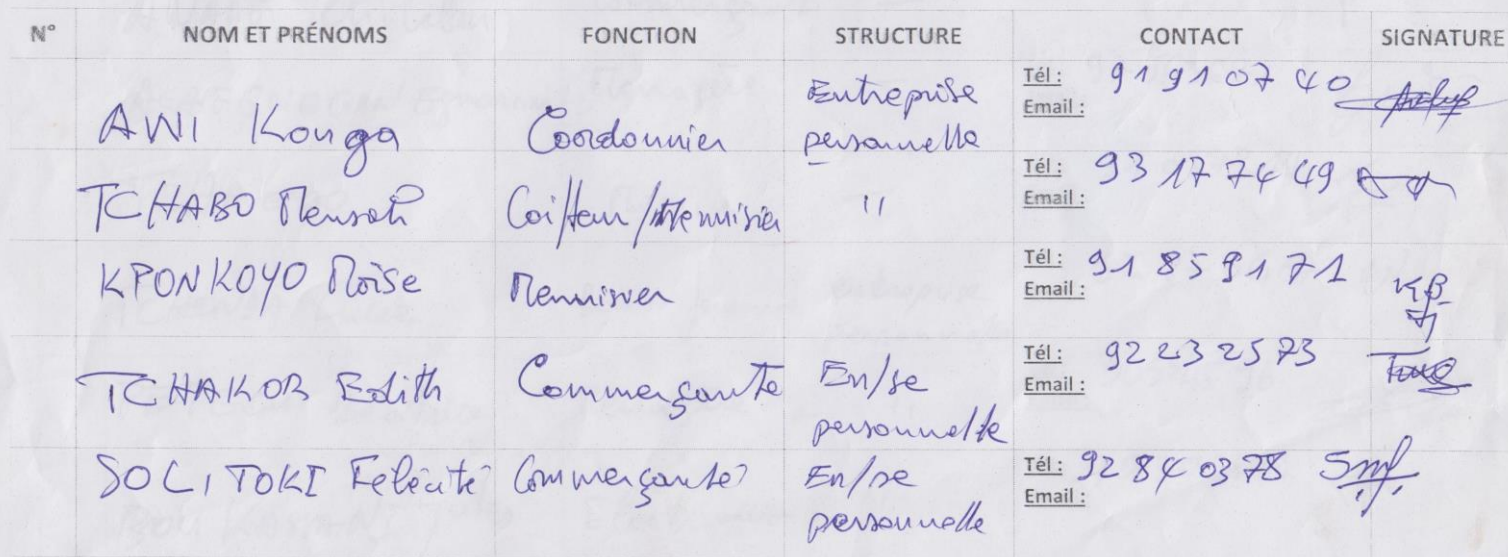 N° NOM ET PRÉNOMS FONCTION STRUCTURE CONTACT SIGNATURE
AWI Konga Coordonnier Entreprise personnelle Tél : 91 91 07 40
Email :
TCHABO Mensah Coiffeur/Menuisier " Tél : 93 17 74 49
Email :
KPONKOYO Moïse Menuisier Tél : 91 85 91 71
Email :
TCHAKOR Edith Commerçante En/se personnelle Tél : 92 23 25 73
Email :
SOCITOKI Félicité Commerçante En/se personnelle Tél : 92 84 03 78
Email :